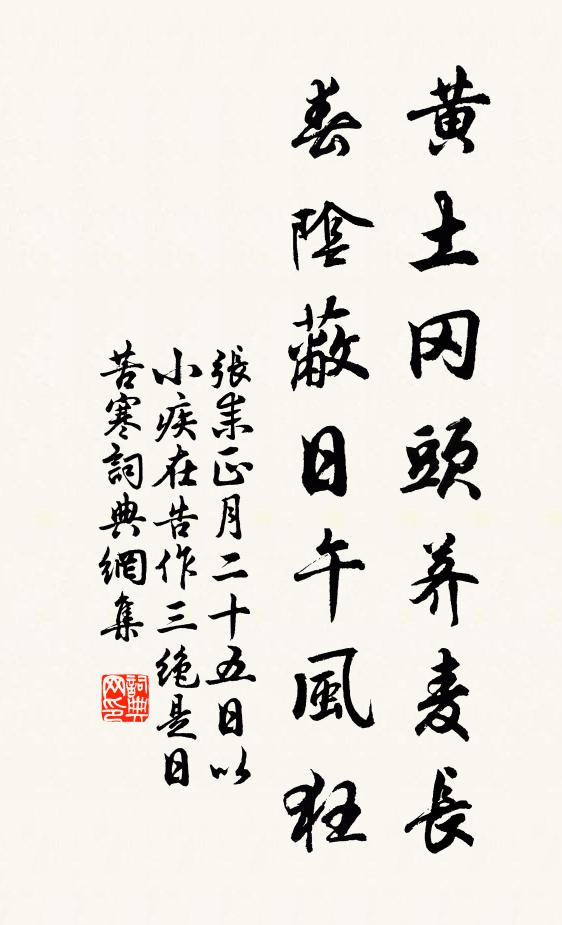 黄土冈頭荞麦長
春陰蔽日午風狂
張耒正月二十五日以
小疾在告作三绝是日
苦寒詞典網集
詞典
网印